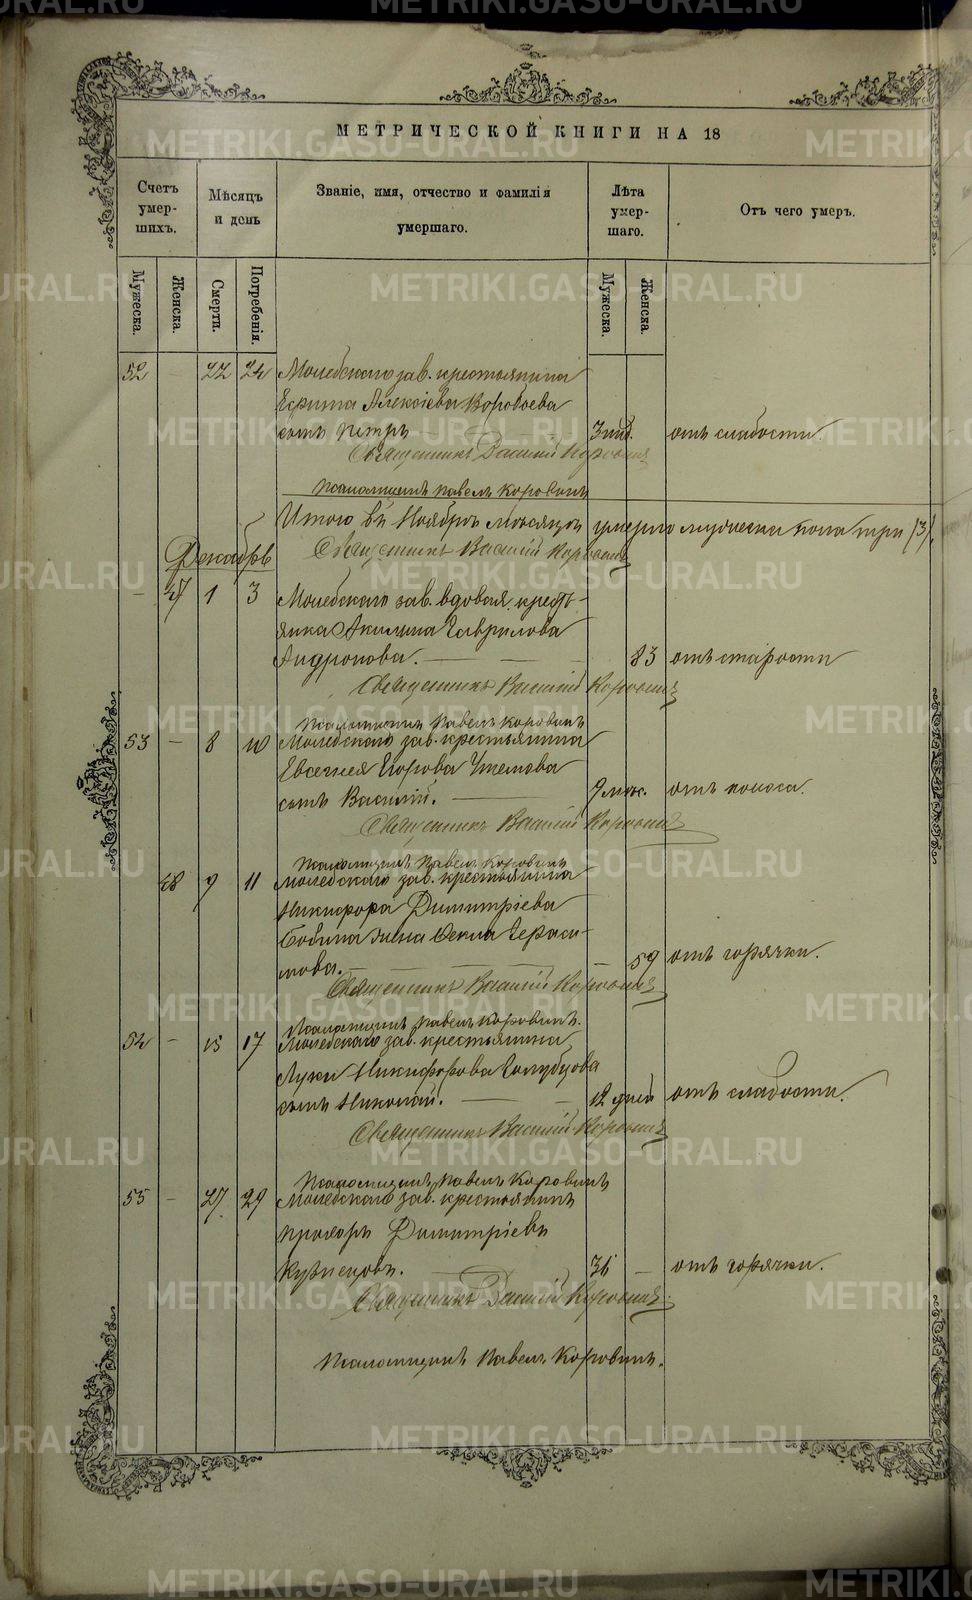 МЕТРИЧЕСКОЙ КНИГИ НА 18
Счетъ умер- шихъ.
Мѣсяцъ и день
Званіе, имя, отчество и фамилія умершаго.
Лѣта умер- шаго.
Отъ чего умеръ.
Мужеска. Женска. Смерти. Погребенія. Мужеска. Женска.
52 — 22 24 Молебскаго зав. крестьянина
Алексіева Воробьева
сынъ Петръ отъ слабости.
Священникъ Василій Коровинъ
Псаломщикъ Павелъ Коровинъ
Итого въ Ноябрѣ мѣсяцѣ умерло мужеска пола три (3).
Священникъ Василій Коровинъ
Декабрь
— 47 1 3 Молебскаго зав. вдовая крест-
янка Акилина Гаврилова
Андронова. — 83 отъ старости
Священникъ Василій Коровинъ
Псаломщикъ Павелъ Коровинъ
53 — 8 10 Молебскаго зав. крестьянина
Евсевія Егорова
сынъ Василій. — отъ поноса.
Священникъ Василій Коровинъ
Псаломщикъ Павелъ Коровинъ
48 9 11 Молебскаго зав. крестьянина
Никифора Димитріева
жена Фекла Гераси-
мова. — 59 отъ горячки.
Священникъ Василій Коровинъ
Псаломщикъ Павелъ Коровинъ.
54 — 15 17 Молебскаго зав. крестьянина
Луки Никифорова Голубцова
сынъ Николай. — 12 дней отъ слабости.
Священникъ Василій Коровинъ
Псаломщикъ Павелъ Коровинъ
55 — 27 29 Молебскаго зав. крестьянинъ
Прохоръ Димитріевъ
Кузнецовъ. 36 — отъ горячки.
Священникъ Василій Коровинъ.
Псаломщикъ Павелъ Коровинъ.
METRIKI.GASO-URAL.RU